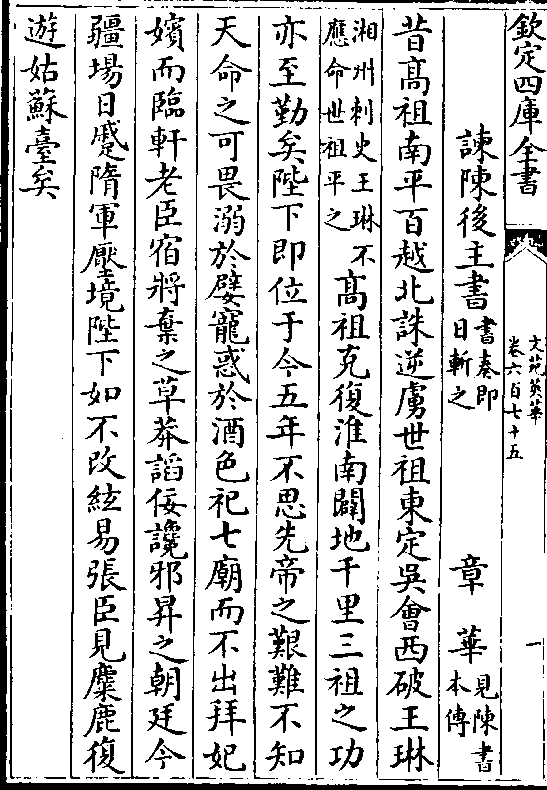 欽定四庫全書
文苑英華
卷六百七十五
一
諫陳後主書書奏即日斬之 章華見陳書本傳
昔髙祖南平百越北誅逆虜世祖東定吳會西破王琳
湘州刺史王琳不應命世祖平之髙祖克復淮南闢地千里三祖之功
亦至勤矣陛下即位于今五年不思先帝之艱難不知
天命之可畏溺於嬖寵惑於酒色祀七廟而不出拜妃
嬪而臨軒老臣宿將棄之草莽謟佞讒邪昇之朝廷今
疆場日蹙隋軍壓境陛下如不改絃易張臣見麋鹿復
遊姑蘇臺矣